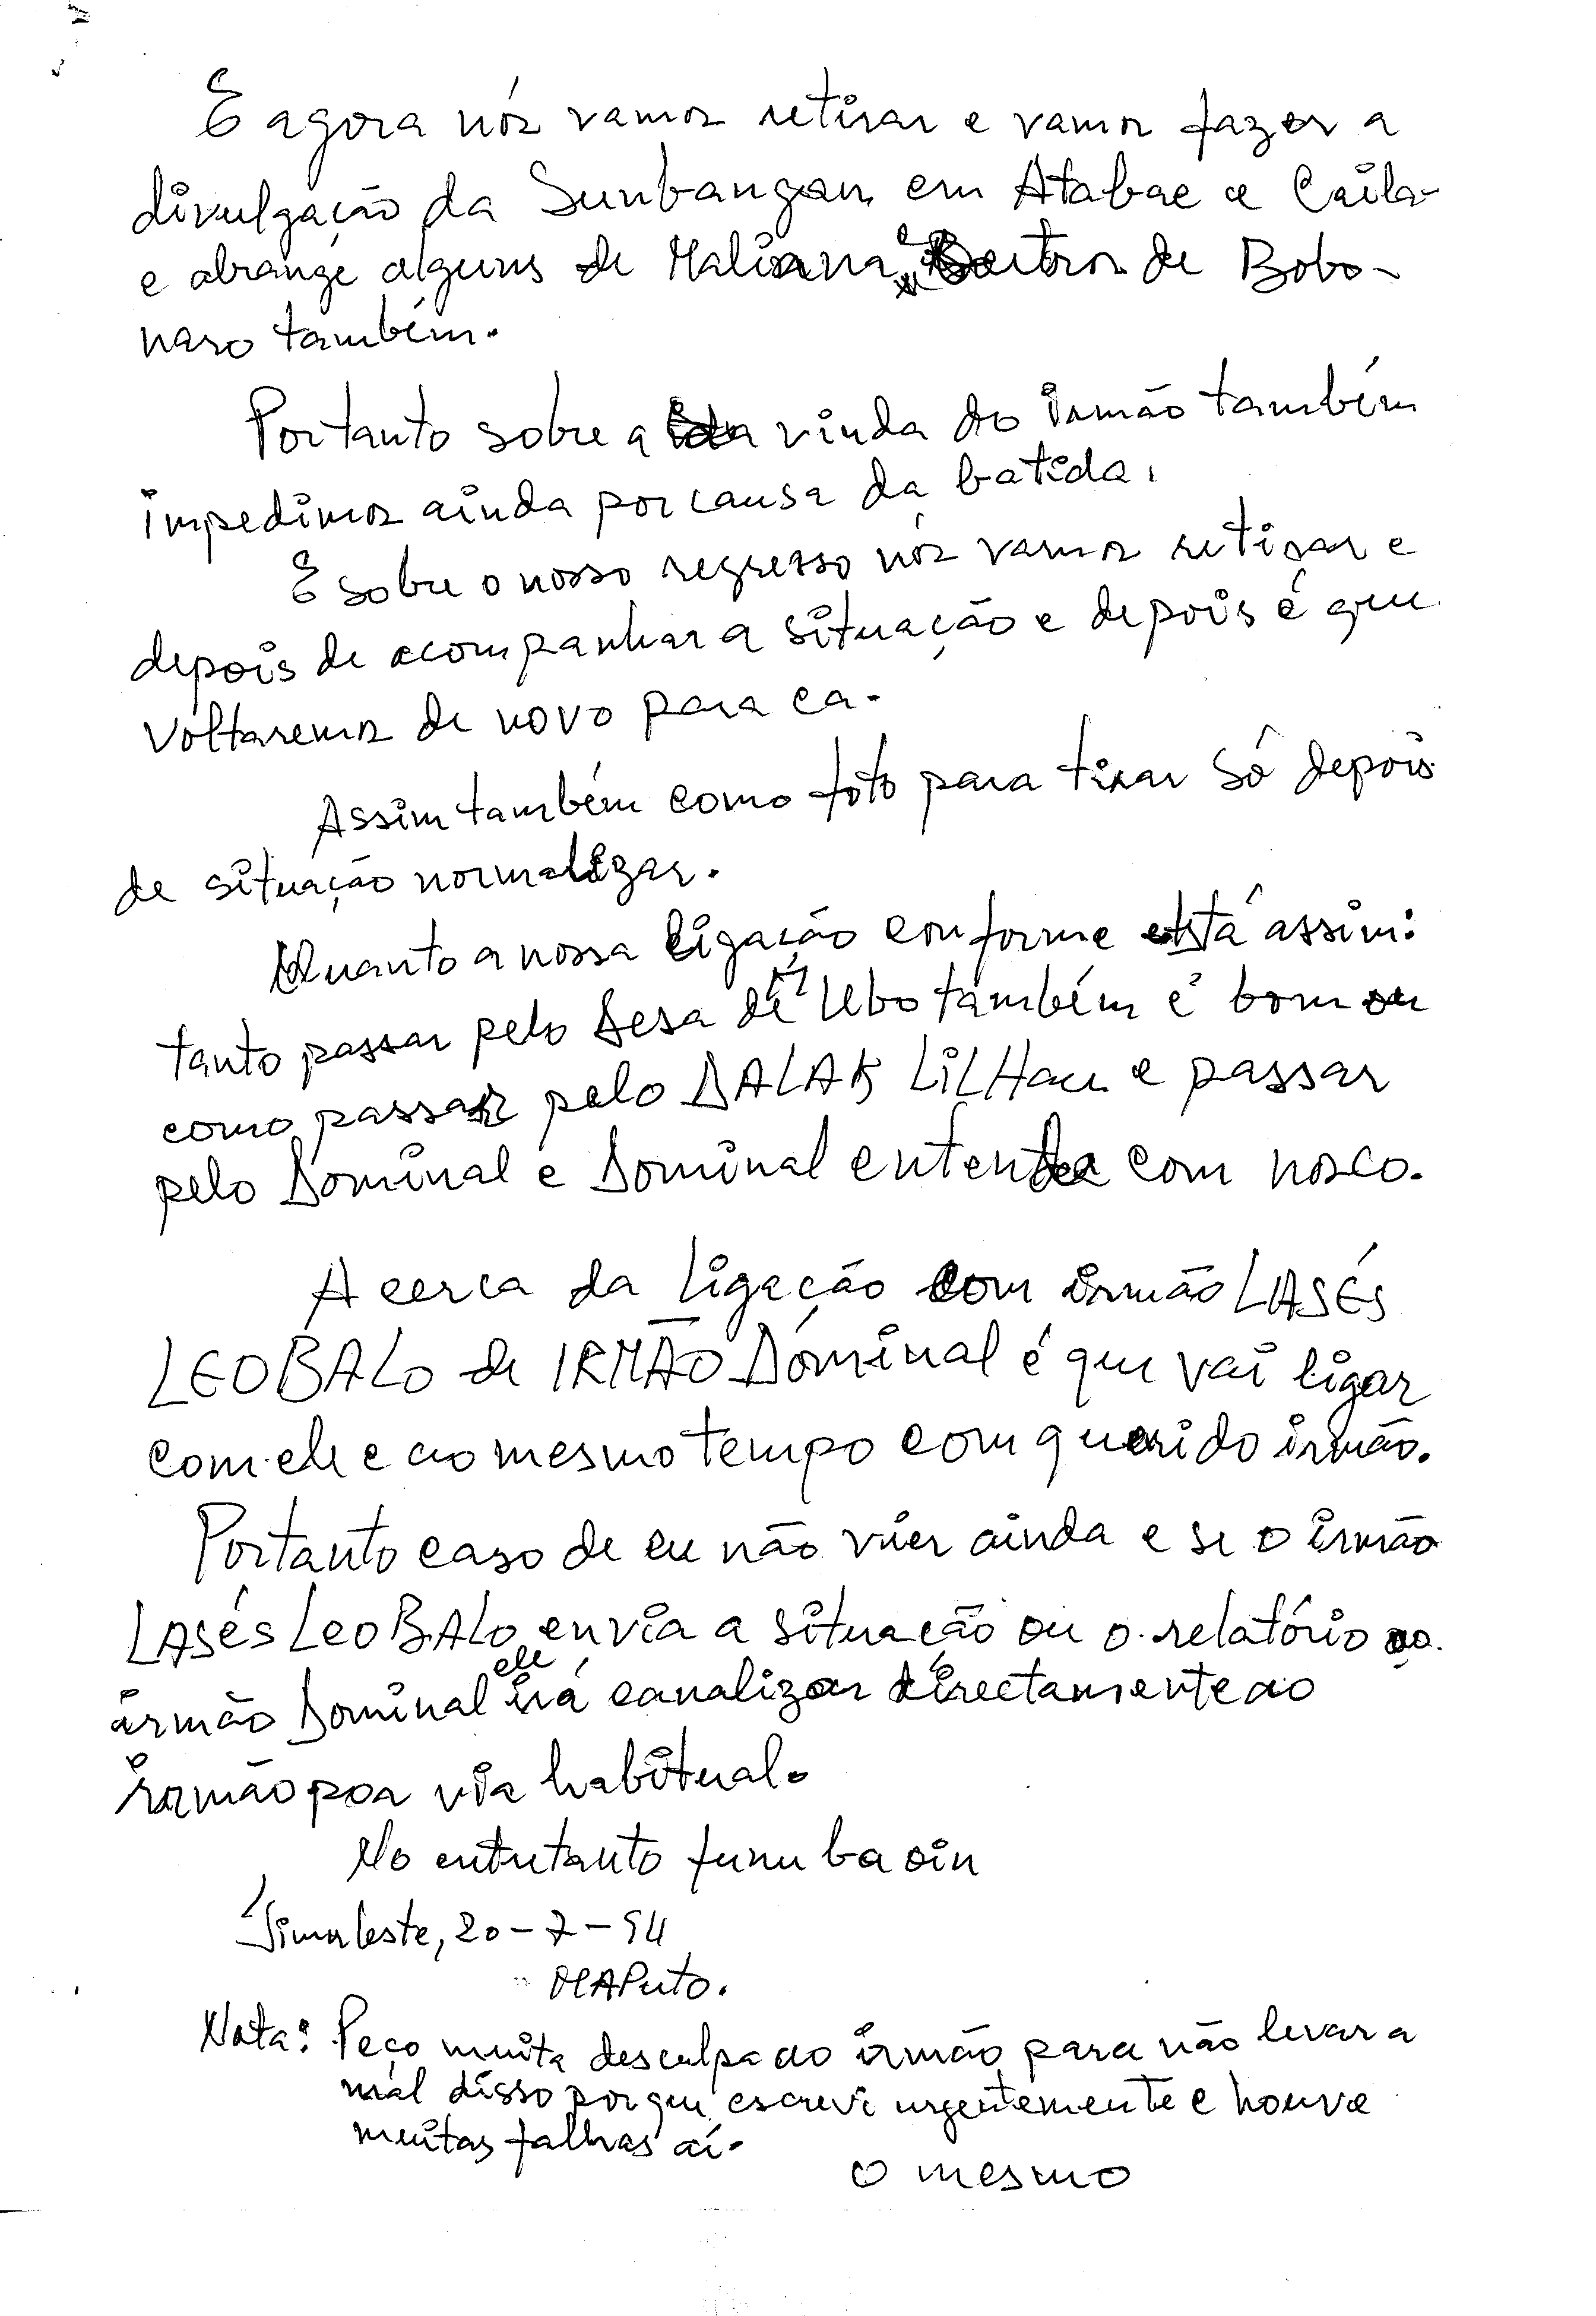 E agora nós vamos retirar e vamos fazer a
divulgação da Sunbangan em Atabae e Caila-
e abrange alguns de Maliana e outros de Bobo-
naro também.
Portanto sobre a vinda do irmão também
impedimos ainda por causa da batida.
E sobre o nosso regresso nós vamos retirar e
depois de acompanhar a situação e depois é que
voltaremos de novo para ca.
Assim também como foto para tirar só depois
de situação normalizar.
Quanto a nossa ligação conforme está assim:
tanto passar pelo Sesa de Ubo também é bom ou
como passar pelo DALAK LiLHau e passar
pelo Dominal e Dominal entende com nosco.
A cerca da ligação com irmão LASÉS
LEOBALO de IRMÃO Dominal é que vai ligar
com ele e ao mesmo tempo com querido irmão.
Portanto caso de eu não vier ainda e se o irmão
LASÉS LEOBALO envia a situação ou o relatório ao
irmão Dominal ele irá canalizar directamente ao
irmão por via habitual.
No entretanto funu ba oin
Timorleste, 20-7-94
MAPuto.
Nota: Peço muita desculpa ao irmão para não levar a
mal disso porque escrevi urgentemente e houve
muitas falhas aí.
O mesmo